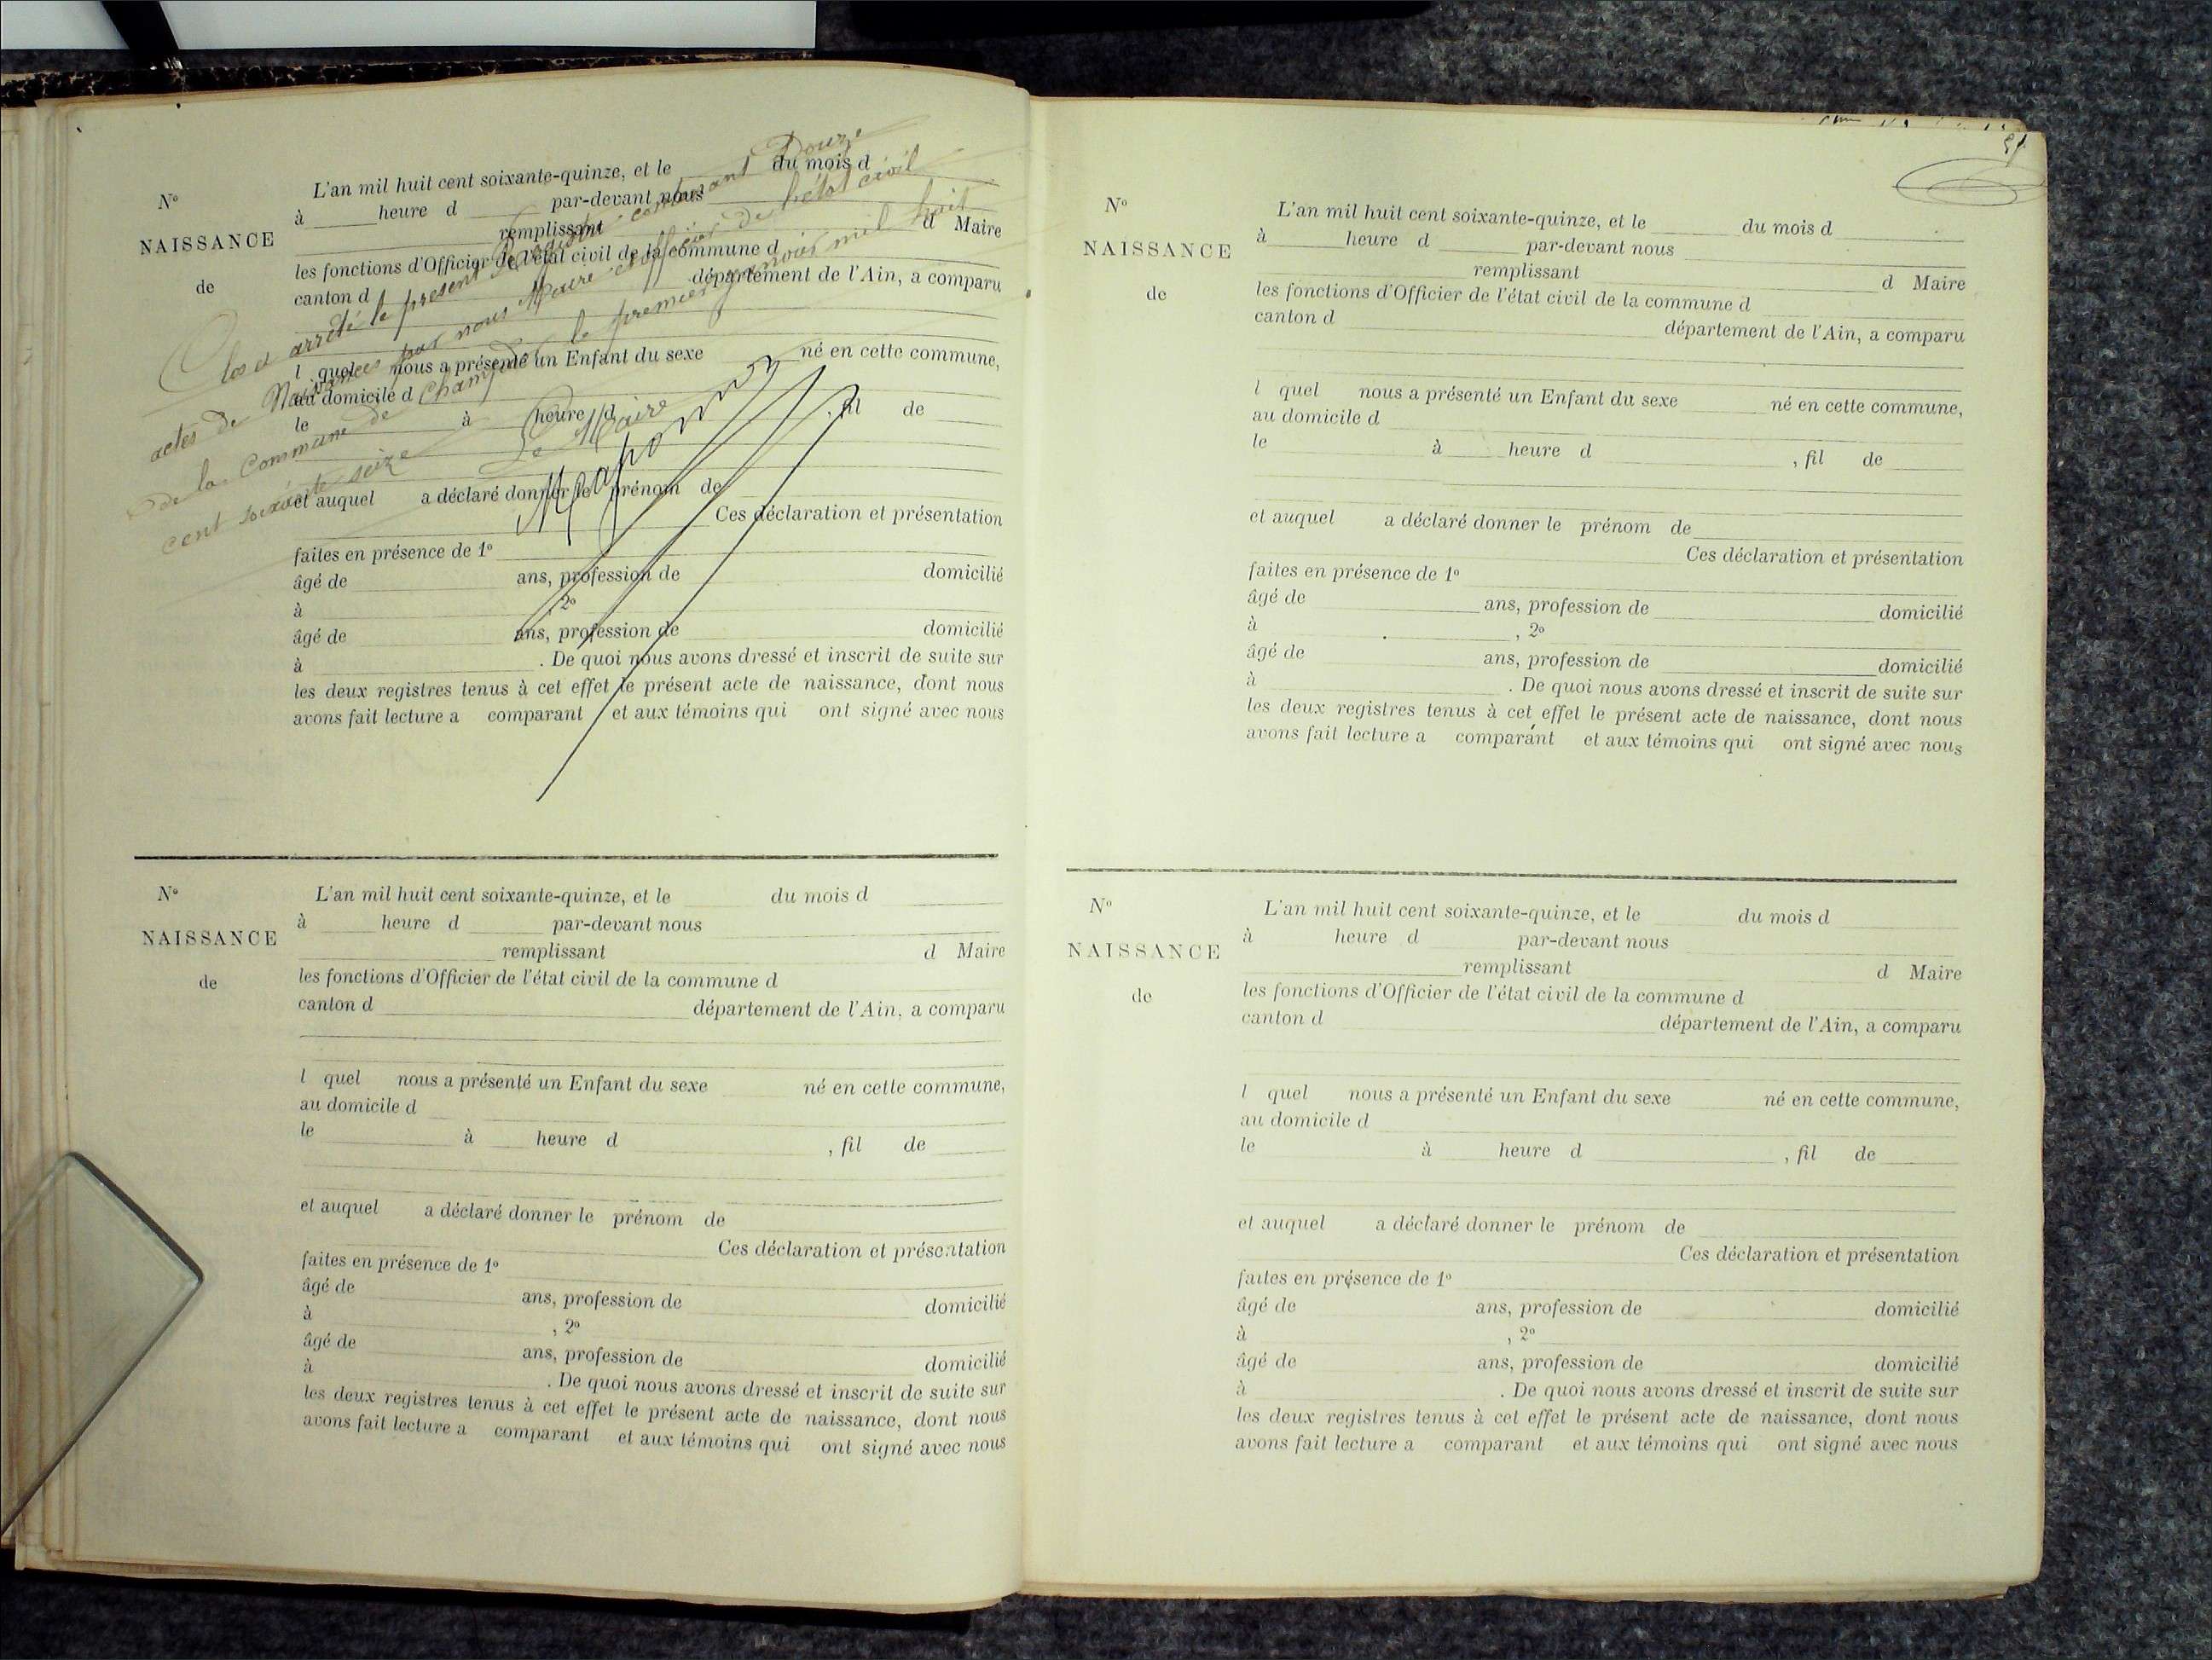 Clos et arrêté le présent Registre contenant Douze
actes de Naissances par nous Maire et officier de l'état civil
de la Commune de le premier janvier mil huit
cent soixante seize
Le Maire
N°
NAISSANCE
de
L'an mil huit cent soixante-quinze, et le du mois d
à heure d par-devant nous
remplissant d Maire
les fonctions d'Officier de l'état civil de la commune d
canton d département de l'Ain, a comparu
l quel nous a présenté un Enfant du sexe né en cette commune,
au domicile d
le à heure d , fil de
et auquel a déclaré donner le prénom de
Ces déclaration et présentation
faites en présence de 1°
âgé de ans, profession de domicilié
à , 2°
âgé de ans, profession de domicilié
à . De quoi nous avons dressé et inscrit de suite sur
les deux registres tenus à cet effet le présent acte de naissance, dont nous
avons fait lecture a comparant et aux témoins qui ont signé avec nous
N°
NAISSANCE
de
L'an mil huit cent soixante-quinze, et le du mois d
à heure d par-devant nous
remplissant d Maire
les fonctions d'Officier de l'état civil de la commune d
canton d département de l'Ain, a comparu
l quel nous a présenté un Enfant du sexe né en cette commune,
au domicile d
le à heure d , fil de
et auquel a déclaré donner le prénom de
Ces déclaration et présentation
faites en présence de 1°
âgé de ans, profession de domicilié
à , 2°
âgé de ans, profession de domicilié
à . De quoi nous avons dressé et inscrit de suite sur
les deux registres tenus à cet effet le présent acte de naissance, dont nous
avons fait lecture a comparant et aux témoins qui ont signé avec nous
N°
NAISSANCE
de
L'an mil huit cent soixante-quinze, et le du mois d
à heure d par-devant nous
remplissant d Maire
les fonctions d'Officier de l'état civil de la commune d
canton d département de l'Ain, a comparu
l quel nous a présenté un Enfant du sexe né en cette commune,
au domicile d
le à heure d , fil de
et auquel a déclaré donner le prénom de
Ces déclaration et présentation
faites en présence de 1°
âgé de ans, profession de domicilié
à , 2°
âgé de ans, profession de domicilié
à . De quoi nous avons dressé et inscrit de suite sur
les deux registres tenus à cet effet le présent acte de naissance, dont nous
avons fait lecture a comparant et aux témoins qui ont signé avec nous
N°
NAISSANCE
de
L'an mil huit cent soixante-quinze, et le du mois d
à heure d par-devant nous
remplissant d Maire
les fonctions d'Officier de l'état civil de la commune d
canton d département de l'Ain, a comparu
l quel nous a présenté un Enfant du sexe né en cette commune,
au domicile d
le à heure d , fil de
et auquel a déclaré donner le prénom de
Ces déclaration et présentation
faites en présence de 1°
âgé de ans, profession de domicilié
à , 2°
âgé de ans, profession de domicilié
à . De quoi nous avons dressé et inscrit de suite sur
les deux registres tenus à cet effet le présent acte de naissance, dont nous
avons fait lecture a comparant et aux témoins qui ont signé avec nous